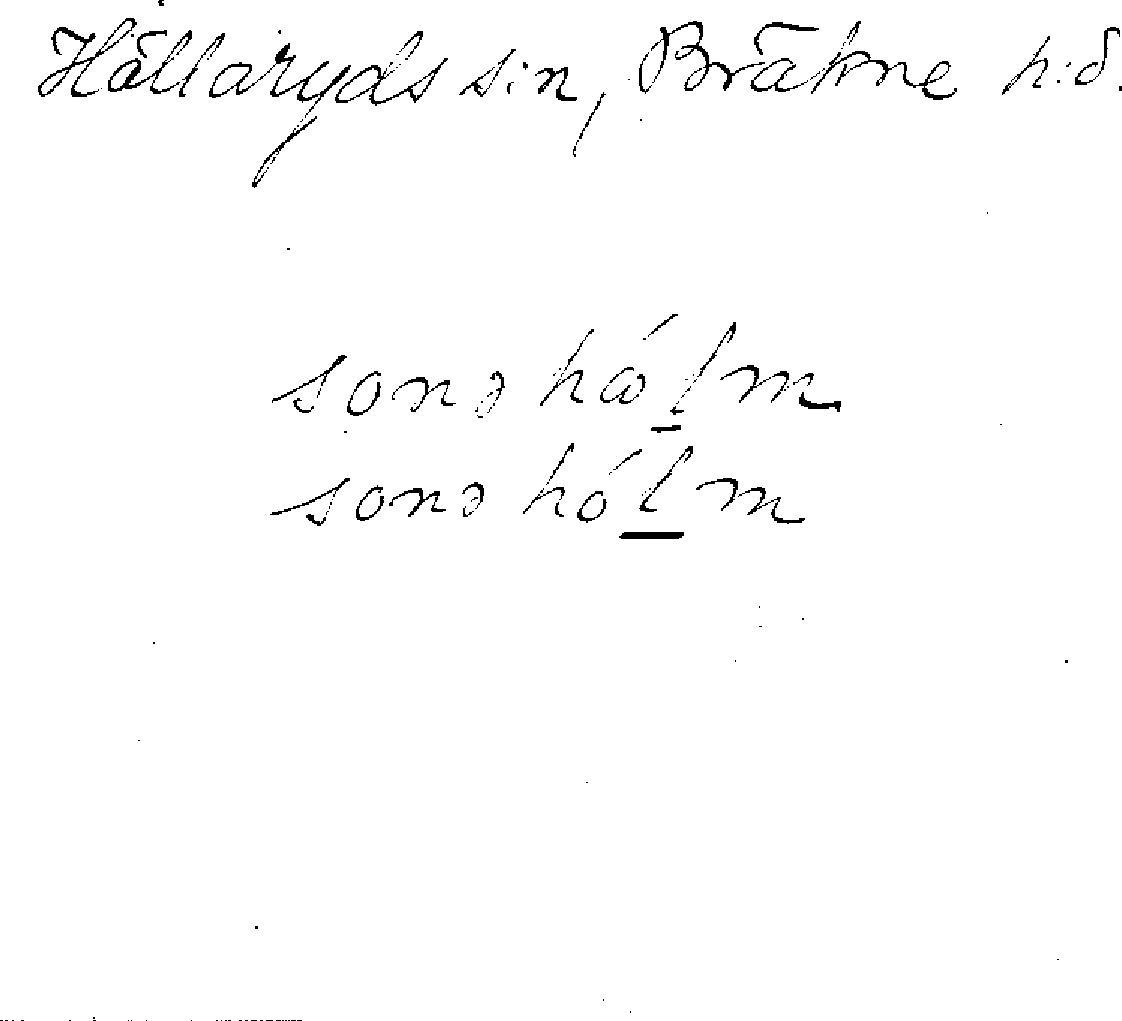 Hällaryds s:n, Bräkne h:d.
sonə hɷ́l̲m
sonə hól̲m